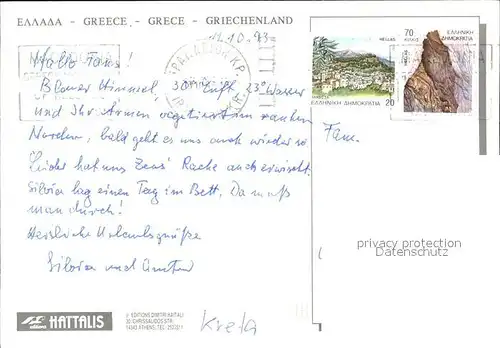 ΕΛΛΑΔΑ - GREECE - GRECE - GRIECHENLAND
11.10.93
Hallo Fans!
Blauer Himmel 30° Luft, 23° Wasser
und Ihr Armen vegetiert im rauhen
Norden, bald geht es uns auch wieder so
Leider hat uns Zeus' Rache auch erwischt.
Silvia lag einen Tag im Bett. Da muß
man durch!
Herzliche Urlaubsgrüße
Silvia und
ΕΛΛΗΝΙΚΗ ΔΗΜΟΚΡΑΤΙΑ 20
HELLAS
70
ΕΛΛΗΝΙΚΗ
ΔΗΜΟΚΡΑΤΙΑ
Fam.
privacy protection
VEREDARIUS.COM
HATTALIS
© EDITIONS DIMITRI HAITALI
14343 ATHENS, TEL.
Kreta